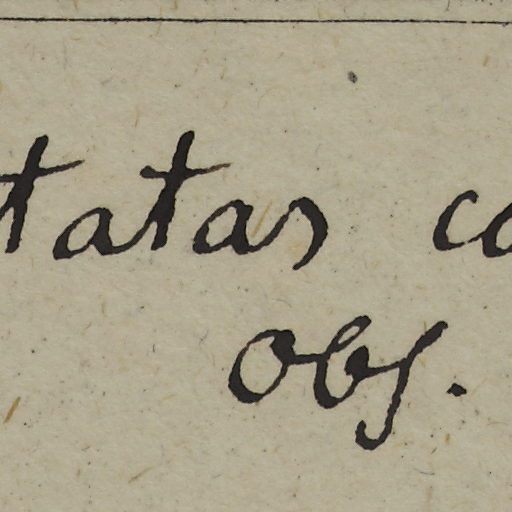 tatas co
Obs.